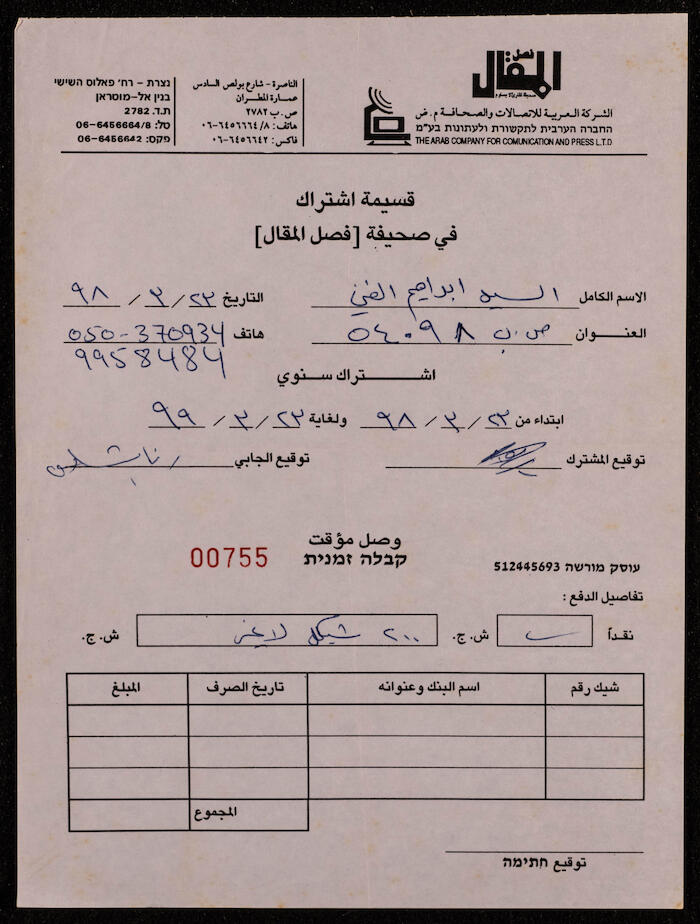 فصل
المقال
الشركة العربية للاتصالات والصحافة م.ض
החברה הערבית לתקשורת ולעתונות בע"מ
THE ARAB COMPANY FOR COMUNICATION AND PRESS L.T.D
الناصرة - شارع بولص السادس
عمارة المطران
ص.ب ٢٧٨٢
هاتف: ٠٦-٦٤٥٦٦٦٤/٨
فاكس: ٠٦-٦٤٥٦٦٤٢
נצרת - רח' פאלוס השישי
בנין אל-מוטראן
ת.ד. 2782
טל: 06-6456664/8
פקס: 06-6456642
قسيمة اشتراك
في صحيفة [فصل المقال]
الاسم الكامل السيد ابراهيم الغني التاريخ ٢٣/٣/٩٨
العنوان ص.ب ٥٤٠٩٨ هاتف 050-370934
9958484
اشتراك سنوي
ابتداء من ٢٣/٣/٩٨ ولغاية ٢٣/٣/٩٩
توقيع المشترك توقيع الجابي
وصل مؤقت
קבלה זמנית
00755
עוסק מורשה 512445693
تفاصيل الدفع:
نقداً ش.ج. ٢٠٠ شيكل لا غير ش.ج.
شيك رقم اسم البنك وعنوانه تاريخ الصرف المبلغ
المجموع
توقيع חתימה